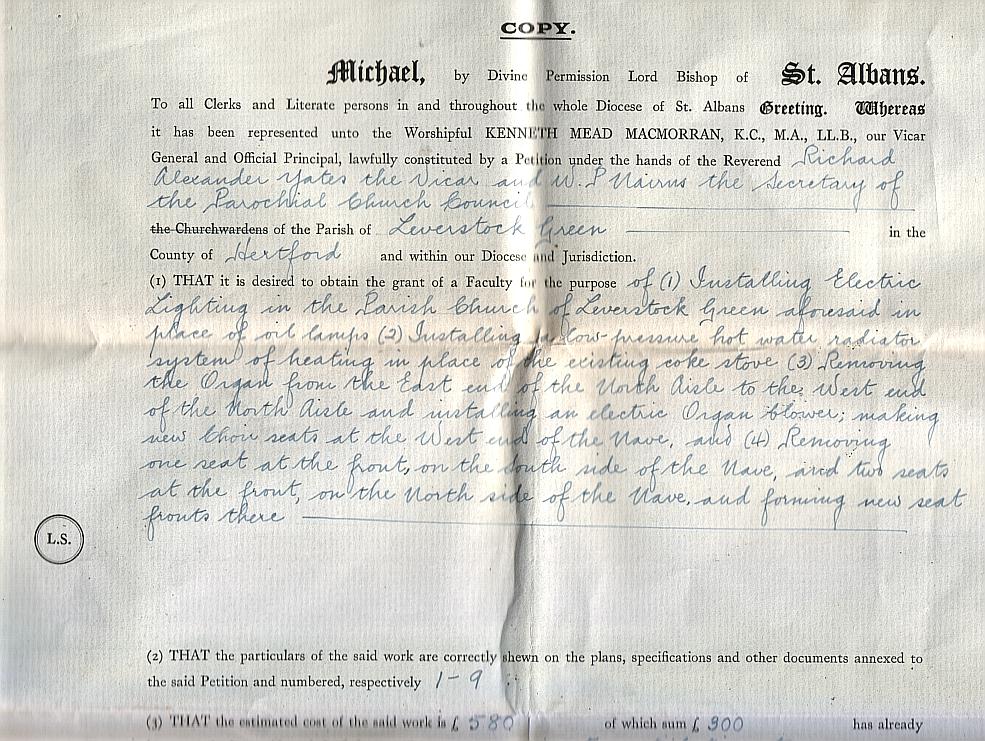 COPY.
Michael, by Divine Permission Lord Bishop of St. Albans.
To all Clerks and Literate persons in and throughout the whole Diocese of St. Albans Greeting. Whereas
it has been represented unto the Worshipful KENNETH MEAD MACMORRAN, K.C., M.A., LL.B., our Vicar
General and Official Principal, lawfully constituted by a Petition under the hands of the Reverend Richard
Alexander Yates the Vicar and W. P Nairns the Secretary of
the Parochial Church Council
the Churchwardens of the Parish of Leverstock Green in the
County of Hertford and within our Diocese and Jurisdiction.
(1) THAT it is desired to obtain the grant of a Faculty for the purpose of (1) Installing Electric
Lighting in the Parish Church of Leverstock Green aforesaid in
place of oil lamps (2) Installing a low-pressure hot water radiator
system of heating in place of the existing coke stove (3) Removing
the Organ from the East end of the North Aisle to the West end
of the North Aisle and installing an electric Organ blower; making
new Choir seats at the West end of the Nave, and (4) Removing
one seat at the front, on the South side of the Nave, and two seats
at the front, on the North side of the Nave, and forming new seat
fronts there
L.S.
(2) THAT the particulars of the said work are correctly shewn on the plans, specifications and other documents annexed to
the said Petition and numbered, respectively 1-9
(3) THAT the estimated cost of the said work is £ 580 of which sum £ 300 has already